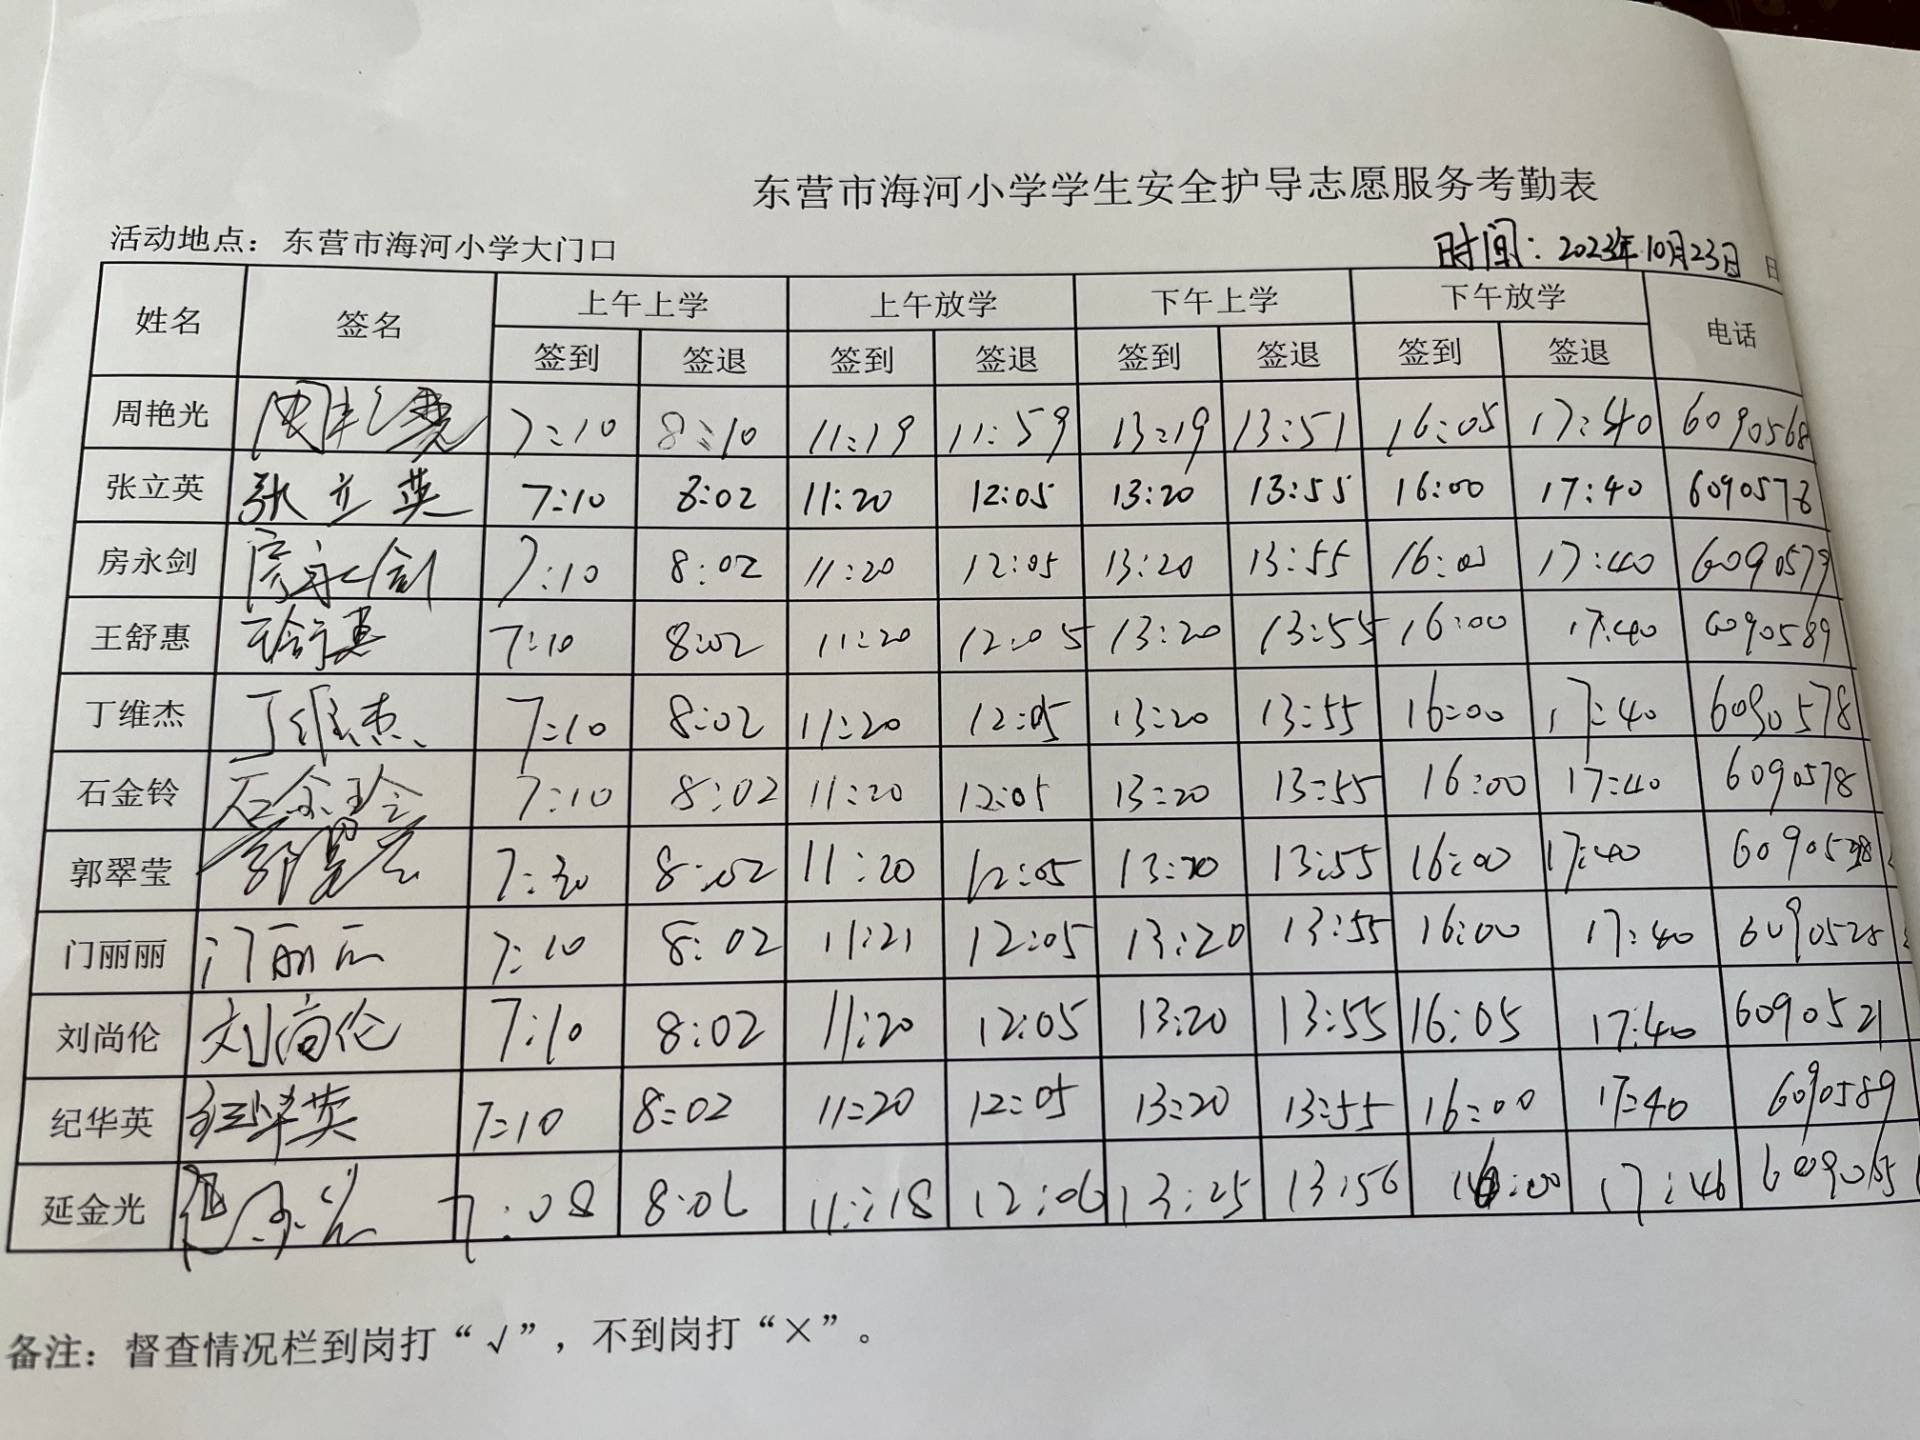 东营市海河小学学生安全护导志愿服务考勤表
活动地点：东营市海河小学大门口 时间：2023年10月23日 日
姓名 签名 上午上学 上午放学 下午上学 下午放学 电话
签到 签退 签到 签退 签到 签退 签到 签退
周艳光 周艳光 7:10 8:10 11:19 11:59 13:19 13:51 16:05 17:40 6090568
张立英 张立英 7:10 8:02 11:20 12:05 13:20 13:55 16:00 17:40 6090578
房永剑 房永剑 7:10 8:02 11:20 12:05 13:20 13:55 16:00 17:40 6090579
王舒惠 王舒惠 7:10 8:02 11:20 12:05 13:20 13:55 16:00 17:40 6090589
丁维杰 丁维杰 7:10 8:02 11:20 12:05 13:20 13:55 16:00 17:40 6090578
石金铃 石金玲 7:10 8:02 11:20 12:05 13:20 13:55 16:00 17:40 6090578
郭翠莹 7:30 8:02 11:20 12:05 13:20 13:55 16:00 17:40
门丽丽 门丽丽 7:10 8:02 11:21 12:05 13:20 13:55 16:00 17:40 6090528
刘尚伦 刘尚伦 7:10 8:02 11:20 12:05 13:20 13:55 16:05 17:40 6090521
纪华英 纪华英 7:10 8:02 11:20 12:05 13:20 13:55 16:00 17:40 6090589
延金光 延金光 7:08 8:06 11:18 12:06 13:25 13:56 16:00 17:46
备注：督查情况栏到岗打“√”，不到岗打“×”。